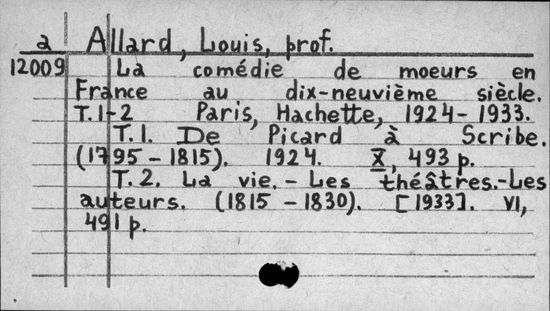 a Allard, Louis, prof.
12009 La comédie de moeurs en
France au dix-neuvième siècle.
T.1-2 Paris, Hachette, 1924-1933.
T.1. De Picard à Scribe.
(1795-1815). 1924. X, 493 p.
T.2. La vie.-Les théâtres.-Les
auteurs. (1815-1830). [1933]. VI,
491 p.